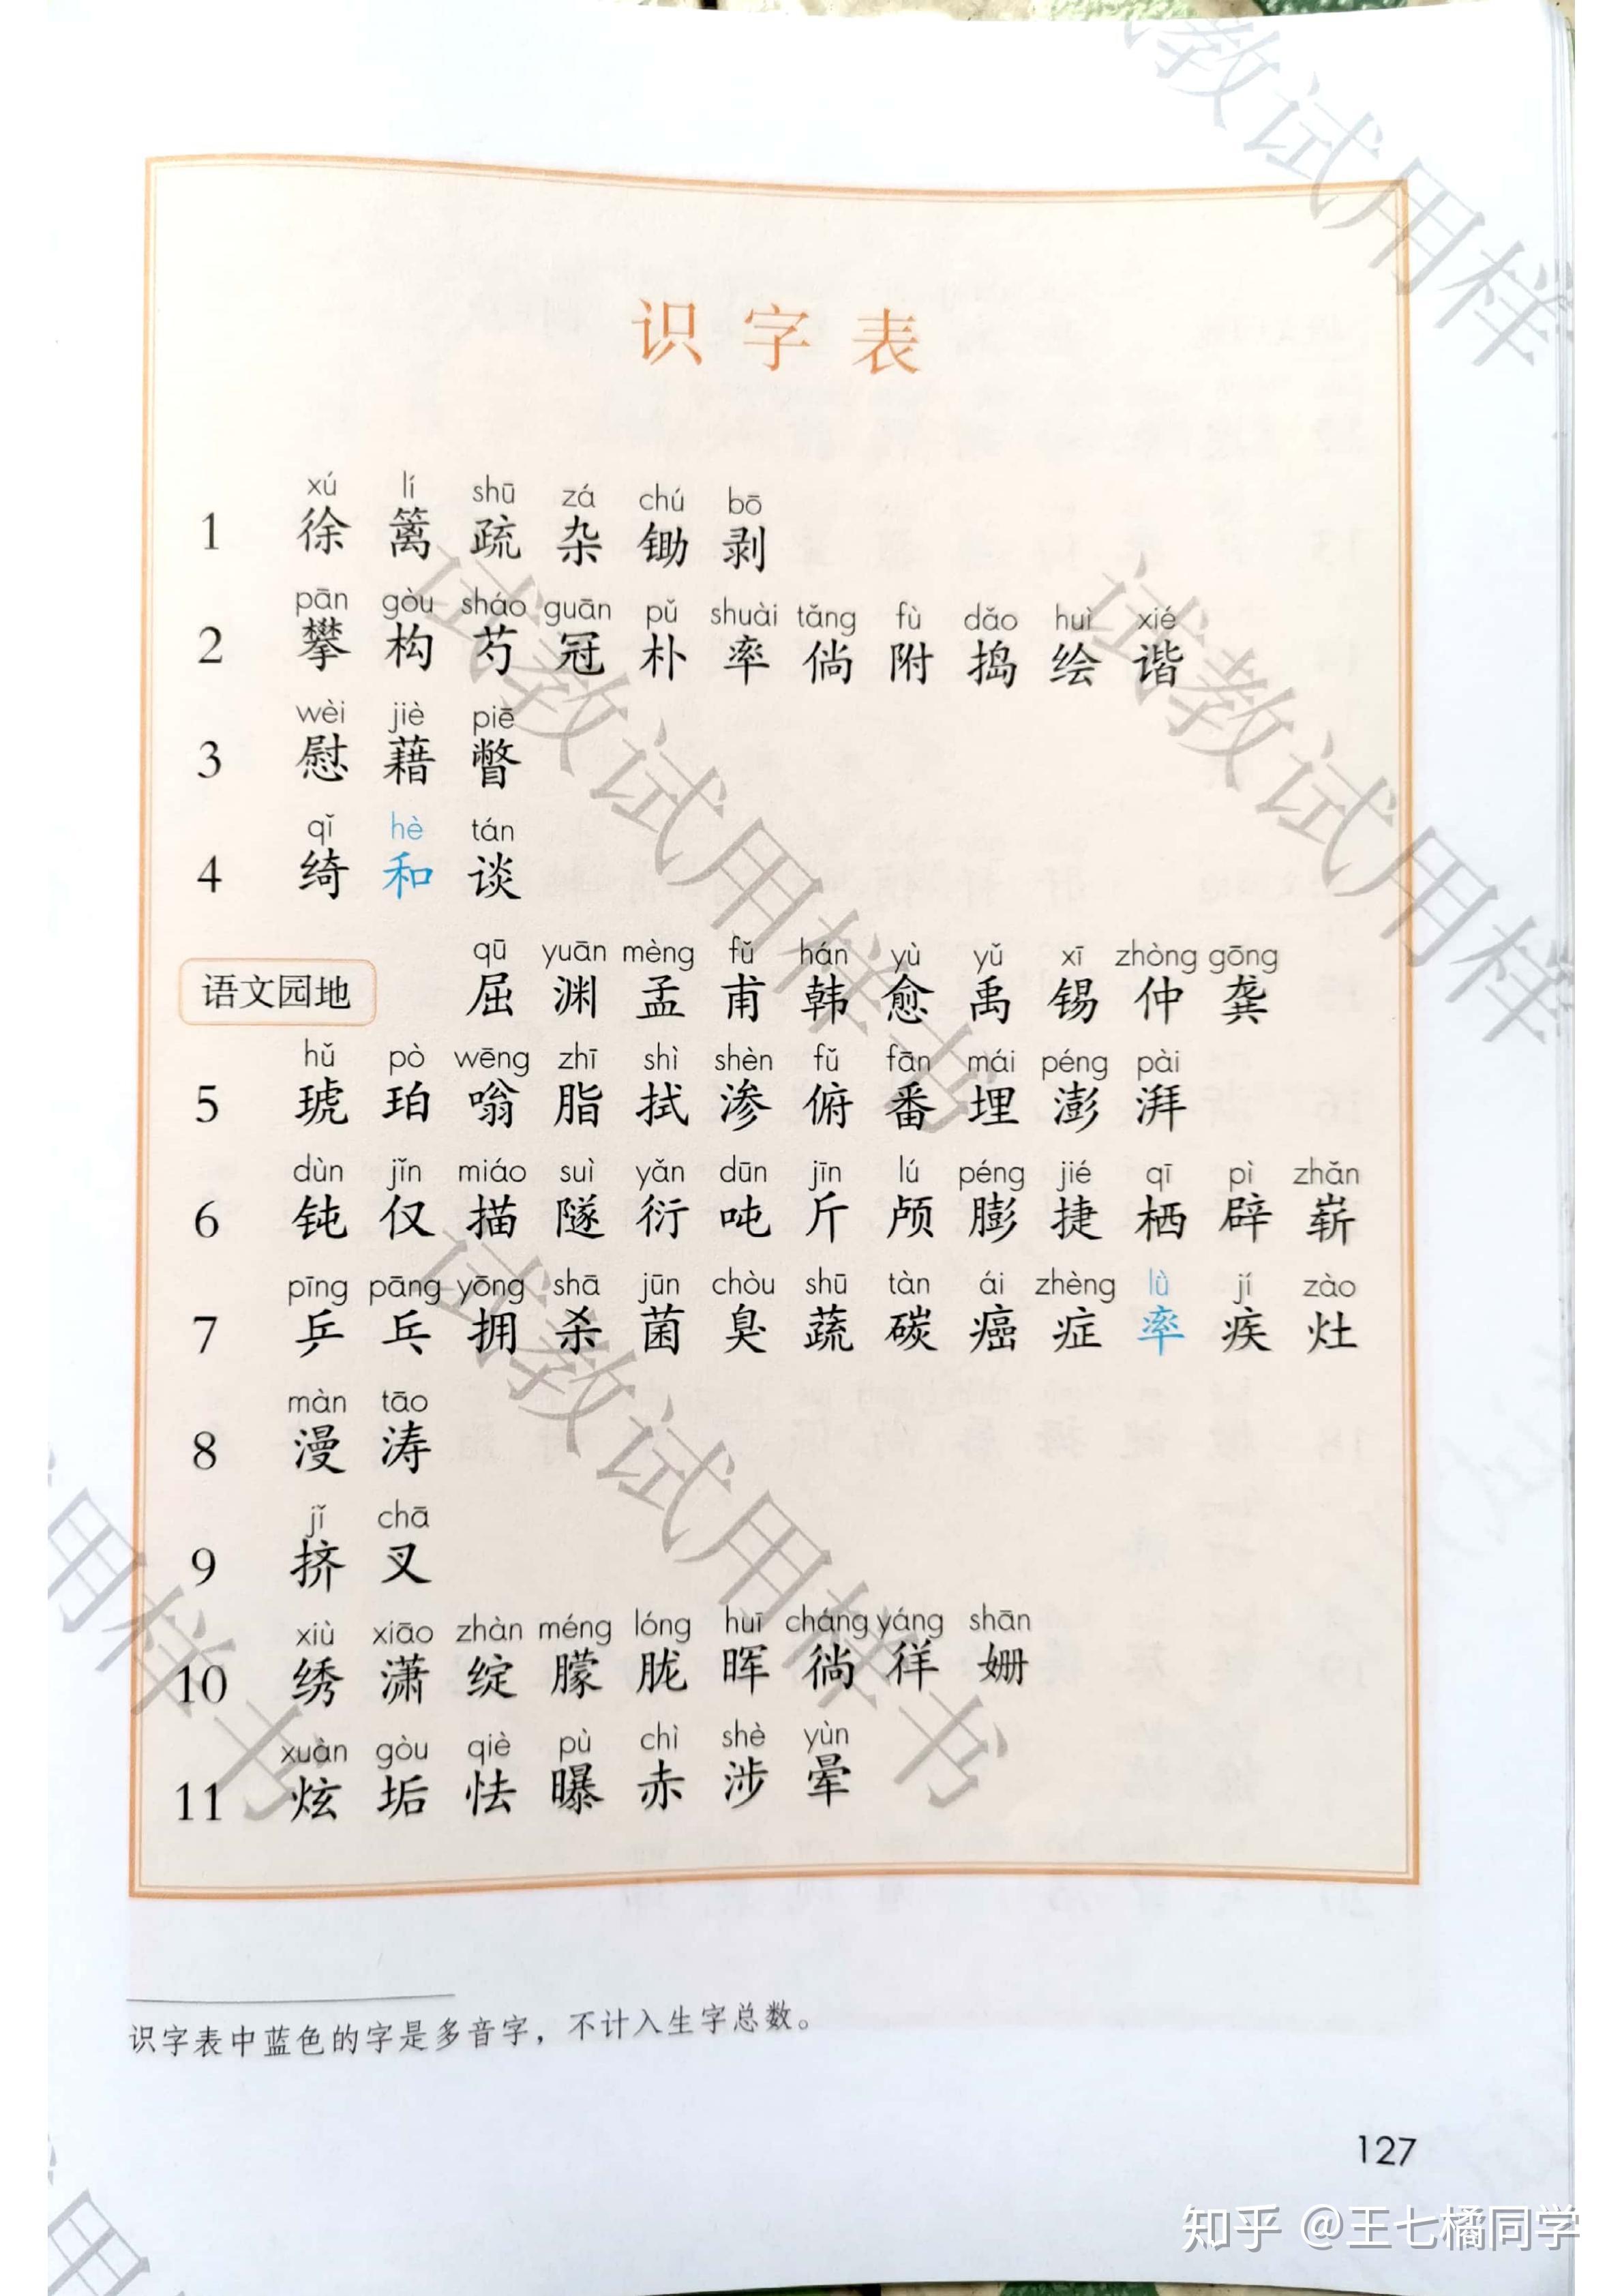 识字表
xú lí shū zá chú bō
1 徐 篱 疏 杂 锄 剥
pān gòu sháo guān pǔ shuài tǎng fù dǎo huì xié
2 攀 构 芍 冠 朴 率 倘 附 捣 绘 谐
wèi jiè piē
3 慰 藉 瞥
qǐ hè tán
4 绮 和 谈
qū yuān mèng fǔ hán yù yǔ xī zhòng gōng
语文园地 屈 渊 孟 甫 韩 愈 禹 锡 仲 龚
hǔ pò wēng zhī shì shèn fǔ fān mái péng pài
5 琥 珀 嗡 脂 拭 渗 俯 番 埋 澎 湃
dùn jǐn miáo suì yǎn dūn jīn lú péng jié qī pì zhǎn
6 钝 仅 描 隧 衍 吨 斤 颅 膨 捷 栖 辟 崭
pīng pāng yōng shā jūn chòu shū tàn ái zhèng lǜ jí zào
7 乒 乓 拥 杀 菌 臭 蔬 碳 癌 症 率 疾 灶
màn tāo
8 漫 涛
jǐ chā
9 挤 叉
xiù xiāo zhàn méng lóng huī cháng yáng shān
10 绣 潇 绽 朦 胧 晖 徜 徉 姗
xuàn gòu qiè pù chì shè yùn
11 炫 垢 怯 曝 赤 涉 晕
识字表中蓝色的字是多音字，不计入生字总数。
127
知乎 @王七橘同学
教试用样
试教试用样书
试教试用样
试教试用样书
用样书
用